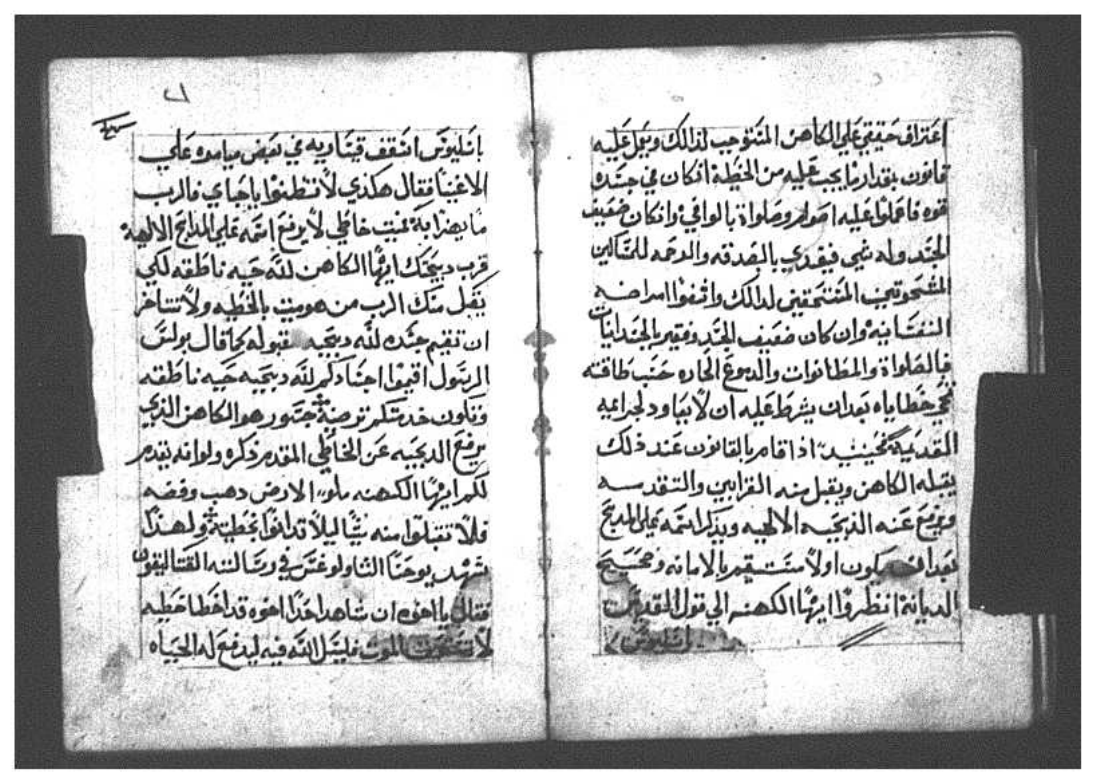 اعتراف حقيقي علي الكاهن المستوجب لذالك ويعمل عليه
قانون بقدار ما يجب عليه من الخطية انكان في جسده
قوه فاعملوا عليه اصوام وصلواة بالوافي وانكان ضعيف
الجسد وله شي فيفدي بالصدقه والرحمه للمساكين
المستحقين لدالك واشفوا امراضه
النفسانيه وان كان ضعيف الجسد وفقير بالجسدانيات
فالصلواة والمطانوات والدموع الحاره حسب طاقته
تمحي خطاياه بعدان يشرط عليه ان لا يعاود لجرايمه
القديمة فحينيد اذا قام بالقانون عند ذلك
يقبله الكاهن ويقبل منه القرابين والتقدسه
ويرفع عنه الذبيحه الالهيه ويذكر اسمه علي المدبح
بعد ان يكون اولا مستقيم بالامانه وصحيح
الديانة انظروا ايها الكهنه الي قول القديس
باسليوس
باسليوس اسقف قيساريه في بعض ميامره علي
الاغنيا فقال هكذي لا تظنوا ياحباي فالرب
خاطي لا يرفع اسمه علي المدابح الالهية
قرب دبيحتك ايها الكاهن لله حيه ناطقه لكي
يقبل منك الرب من هو ميت بالخطيه ولا تتاخر
ان تقيم جسده لله دبيحه مقبوله كما قال بولس
الرسول اقيموا اجسادكم لله دبيحه حيه ناطقه
وتكون خدمتكم مرضية جسور هو الكاهن الذي
يرفع الدبيحه عن الخاطي المقدم ذكره ولو انه يقدم
لكم ايها الكهنه ملو الارض دهب وفضه
فلا تقبلوا منه شيا ليلا تدانوا بخطيته ولهذا
شهد يوحنا التاولوغس في رسالته القتاليقون
فقال يا اخوه ان شاهد احدا اخوه قد اخطا خطيه
لا تستحق الموت فليسل الله فيه ليدفع له الحياه